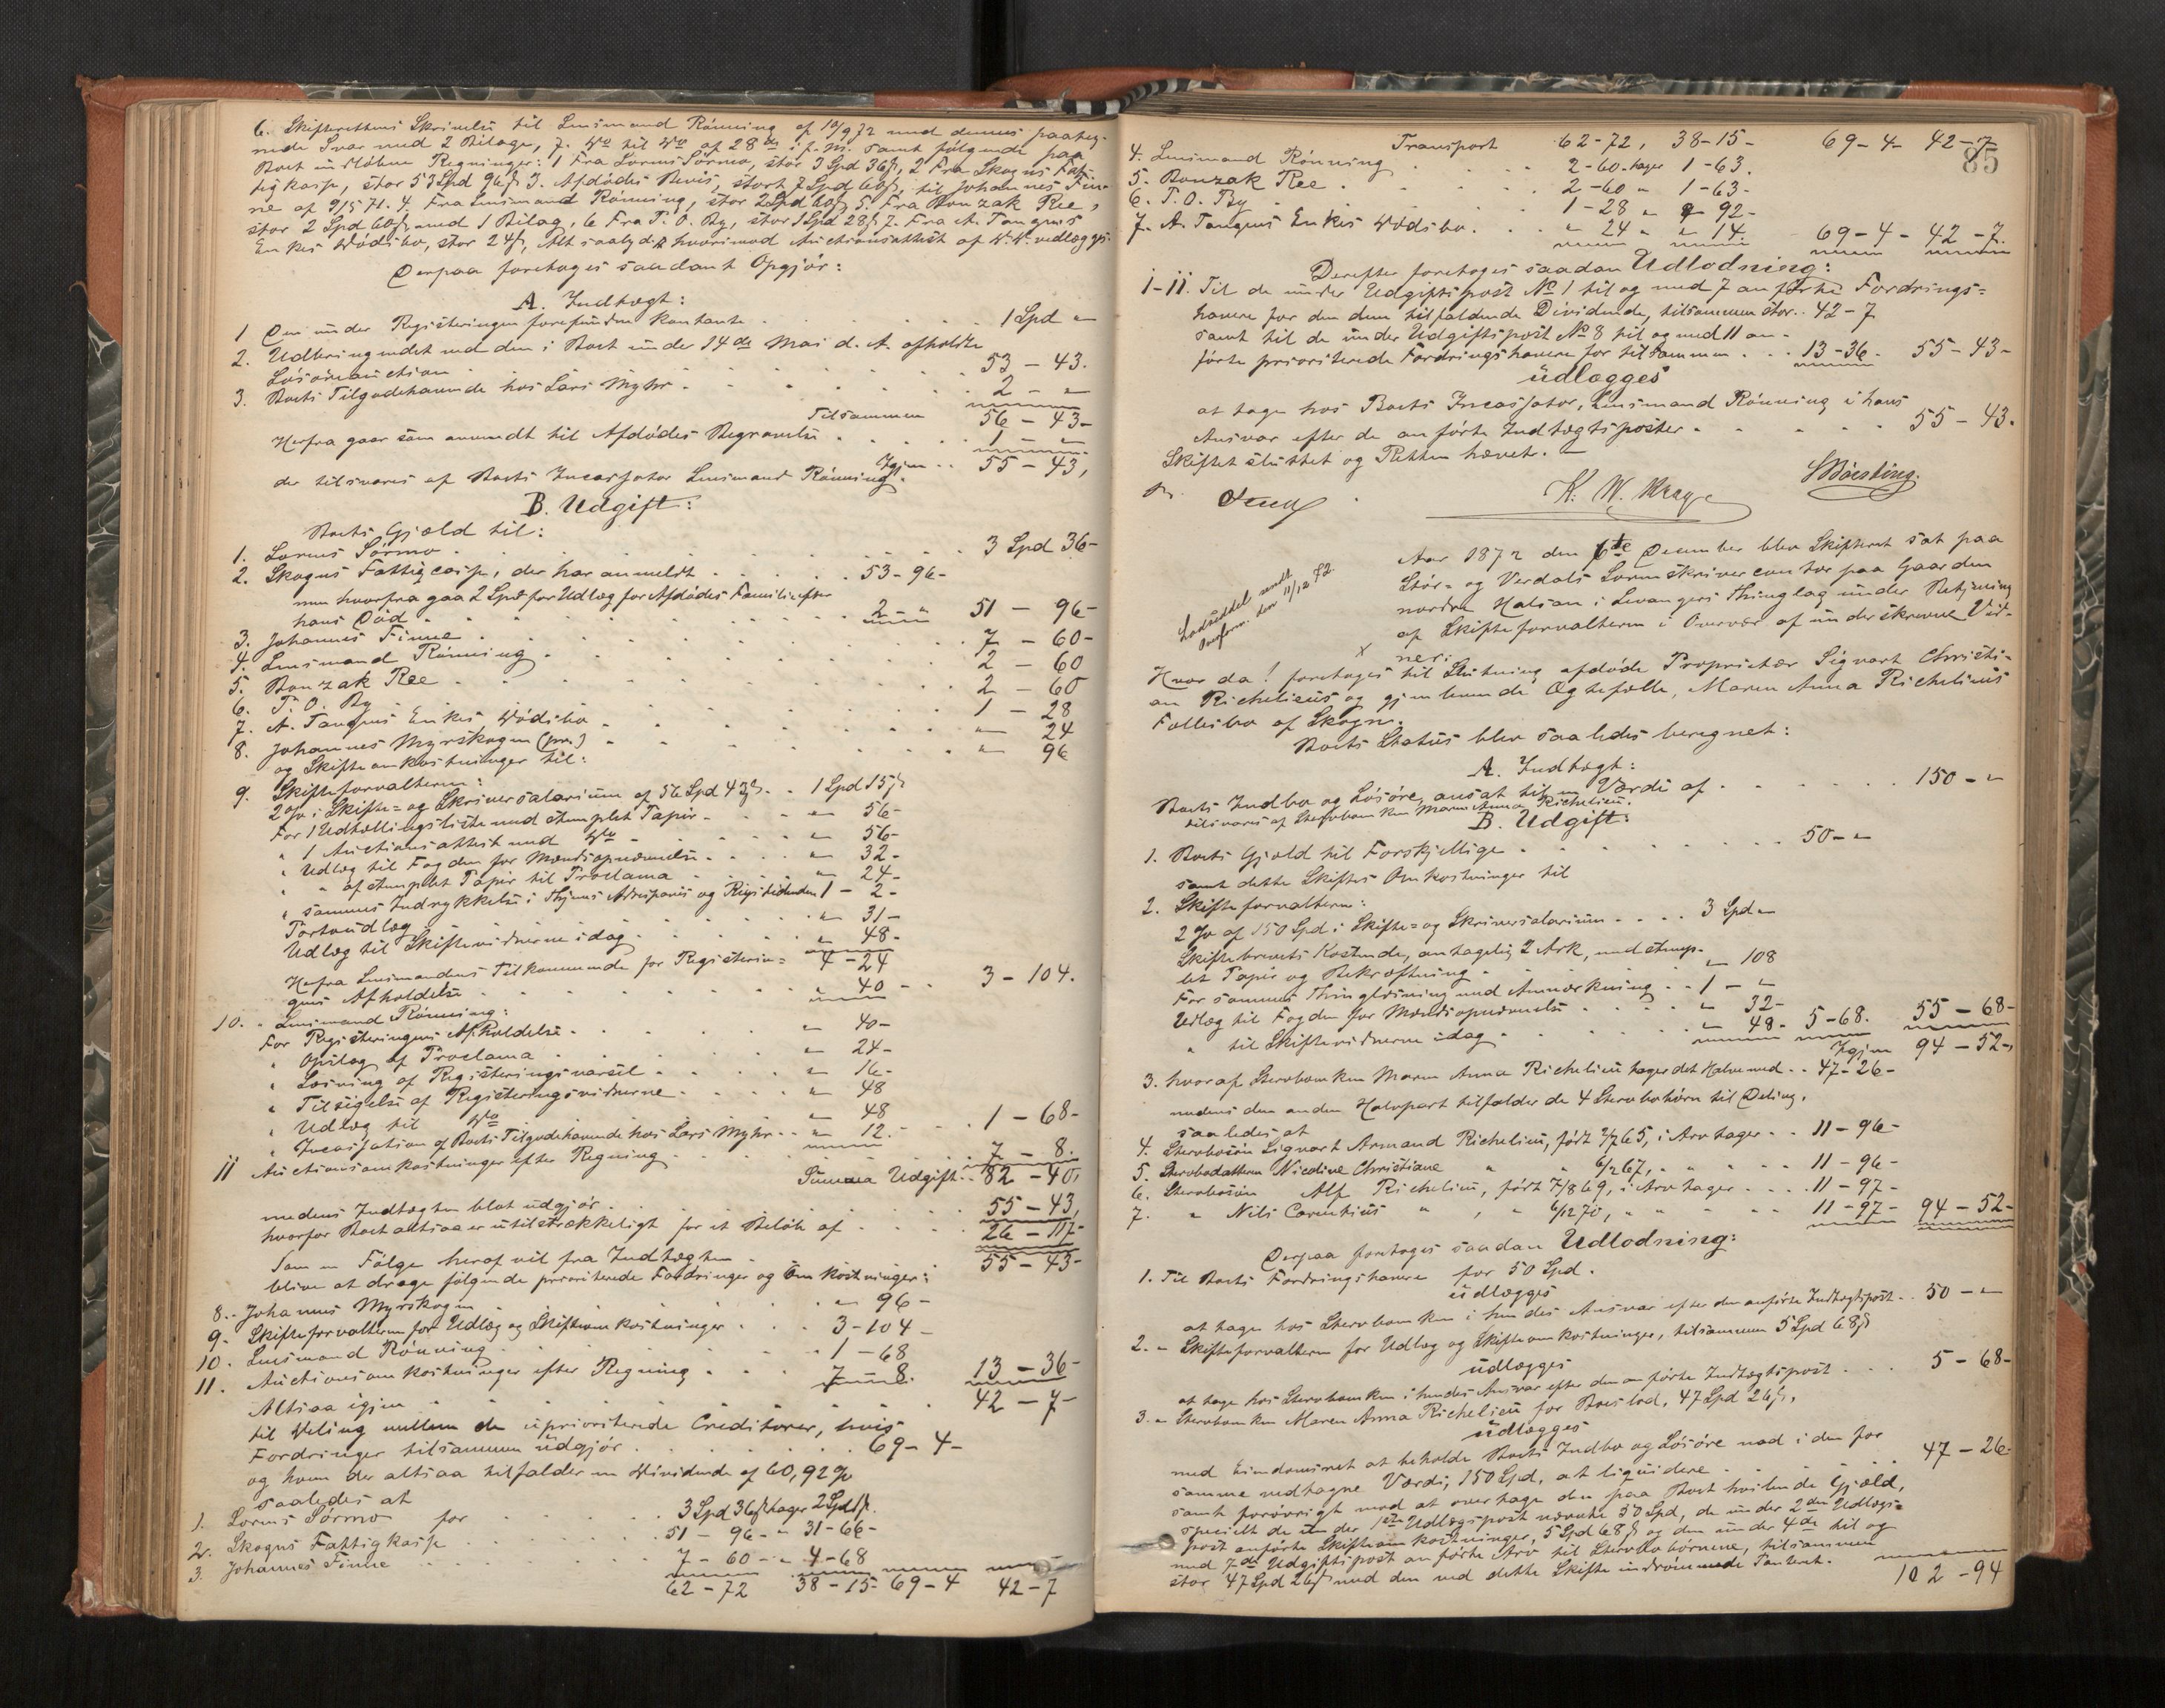 6. Skifterettens Skrivelse til Lensmand Rönning af 10/9 72 med dennes paateg-
nede Svar med 2 Bilage, 7. Do til Do af 28de f. M. samt følgende paa
Boet indløbne Regninger: 1 Fra Lorns Sörmo, stor 3 Spd 36ß, 2 Fra Skogns Fat-
tigkasse, stor 53 Spd 96ß 3. Afdødes Bevis, stort 7 Spd 60ß, til Johannes Fin-
ne af 9/5 71. 4. Fra Lensmand Rönning, stor 2 Spd 60ß 5. Fra Bonzak Ree,
stor 2 Spd 60ß, med 1 Bilag, 6 Fra T. O. By, stor 1 Spd 28ß 7. Fra A. Tangens
Enkes Dödsbo, stor 24ß, Alt hvorimod Auctionsattest af D. D. vedlægges.
Derpaa foretoges saadant Opgjör:
A. Indtægt:
1 Den under Registeringen forefundne Kontante . . . 1 Spd "
2. Udbringendet ved den i Boet under 14de Mai d. A. afholdte
Lösöreauction . . . 53 - 43.
3. Boets Tilgodehavende hos Lars Myhr . . . 2 - "
Tilsammen 56 - 43-
Herfra gaar som anvendt til Afdödes Begravelse . . . 1 - "
Igjen . . 55 - 43,
der tilsvares af Boets Incassator Lensmand Rönning.
B. Udgift:
Boets Gjæld til:
1. Lorns Sörmo . . . 3 Spd 36-
2. Skogns Fattigcasse, der har anmeldt . . . 53-96-
men hvorfra gaa 2 Spd for Udlæg for Afdödes Familie efter
hans Död . . . 2 - " 51 - 96-
3. Johannes Finne . . . 7 - 60-
4. Lensmand Rönning . . . 2 - 60
5. Bonzak Ree . . . 2 - 60
6. T. O. By . . . 1 - 28
7. A. Tangens Enkes Dödsbo . . . " 24
8. Johannes Myrskogen (pr.) . . . " 96
og Skifteomkostninger til:
9. Skifteforvalteren:
2% i Skifte- og Skriversalarium af 56 Spd 43ß . . 1 Spd 15ß
For 1 Udtællingsliste med stemplet Papir . . . " 56-
" 1 Auctionsattest med Do . . . " 56-
" Udlæg til Fogden for Mændsopnævnelse . . . " 32-
" " af stemplet Papir til Proclama . . . " 24-
" sammes Indrykkelse i Thjems Adresseavis og Rigstidenden 1 - 2-
Portoudlæg . . . " 31-
Udlæg til Skiftevidnerne idag . . . " 48-
4-24
Herfra Lensmandens Tilkommende for Registerin-
gens Afholdelse . . . " 40 - . . 3 - 104.
10. " Lensmand Rönning:
For Registeringens Afholdelse . . . " 40-
" Opslag af Proclama . . . " 24-
" Læsning af Registeringsvarsel . . . " 16-
" Tilsigelse af Registeringsvidnerne . . . " 48
" Udlæg til Do . . . " 48
" Incassation af Boets Tilgodehavende hos Lars Myhr . . " 12. . . 1 - 68-
11 Auctionsomkostninger efter Regning . . . 7 - 8.
Summa Udgift . . 82 - 40,
medens Indtægten blot udgjör . . . 55 - 43,
hvorfor Boet altsaa er utilstrækkeligt for et Belöb af . . . 26 - 117-
Som en Fölge heraf vil fra Indtægten . . . 55 - 43-
blive at drage fölgende prioriterede Fordringer og Omkostninger:
8.- Johannes Myrskogen . . . " 96-
9- Skifteforvalteren for Udlæg og Skifteomkostninger . . . 3-104-
10. Lensmand Rönning . . . 1 - 68
11. Auctionsomkostninger efter Regning . . . 7 - 8. 13 - 36-
Altsaa igjen . . . 42 - 7-
til Deling mellem de uprioriterede Creditorer, hvis
Fordringer tilsammen udgjör . . . 69-4-
og hvem der altsaa tilfalder en Dividende af 60,92%
saaledes at
1. Lorns Sörmo for . . . 3 Spd 36ß tager 2 Spd 1ß.
2. Skogns Fattigkasse . . . 51 - 96- " 31-66-
3. Johannes Finne . . . 7 - 60- " 4-68
62-72 38-15- 69-4 42-7
85
Transport 62-72, 38-15- 69-4- 42-7
4. Lensmand Rönning . . . 2-60. tager 1-63.
5. Bonzak Ree . . . 2-60 " 1-63-
6. T. O. By . . . 1-28 " " 92-
7. A. Tangens Enkes Dödsbo . . . " 24 " " 14. 69-4- 42-7.
Derefter foretoges saadan Udlodning:
1-11. Til de under Udgiftspost No 1 til og med 7 anförte Fordrings-
havere for den dem tilfaldende Dividende, tilsammen stor . . 42-7
samt til de under Udgiftspost No 8 til og med 11 an-
förte prioriterede Fordringshavere for tilsammen . . . 13-36- 55-43-
udlægges
at tage hos Boets Incassator, Lensmand Rönning i hans
Ansvar efter de anförte Indtægtsposter . . . 55-43.
Skiftet sluttet og Retten hævet.
K. W. Krag
Lodseddel sendt
Conform. den 11/12 72.
Aar 1872 den 6te December blev Skifteret sat paa
Stör- og Verdals Sorenskrivercontor paa Gaarden
nordre Halsan i Levangers Thinglag under Betjening
af Skifteforvalteren i Overvær af underskrevne Vid-
ner:
Hvor da! foretoges til Slutning afdöde Proprietær Sigvart Christi-
an Richelieus og gjenlevende Ægtefælle, Maren Anna Richelieus
Fællesbo af Skogn.
Boets Status blev saaledes beregnet:
A. Indtægt:
Boets Indbo og Lösöre, ansat til en Værdi af . . . 150 - "
tilsvares af Stervboenken Maren Anna Richelieu.
B. Udgift:
1. Boets Gjæld til Forskjellige . . . 50 - "
samt dette Skiftes Omkostninger til
2. Skifteforvalteren:
2% af 150 Spd i Skifte- og Skriversalarium . . . . 3 Spd "
Skiftebrevets Kostende, antagelig 2 Ark, med stemp-
let Papir og Bekræftning . . . " 108
For sammes Thinglæsning med Anmærkning . . 1 - "
Udlæg til Fogden for Mændsopnævnelse . . . " 32-
" til Skiftevidnerne idag . . . " 48- 5-68. 55-68-
Igjen 94-52-
3. hvoraf Stervboenken Maren Anna Richelieu tager det Halve med . . 47-26-
medens den anden Halvpart tilfalder de 4 Stervbobörn til Deling,
saaledes at
4. Stervbosön Sigvart Armand Richelieu, födt 2/7 65, i Arv tager . . 11-96-
5. Stervbodatteren Nicoline Christiane " " 6/2 67, " " . . 11-96-
6. Stervbosön Alf Richelieu, födt 7/8 69, i Arv tager . . . 11-97-
7. " Nils Carentius " " " 6/12 70, " " . . 11-97- 94-52-
Derpaa foretoges saadan Udlodning:
1. Til Boets Fordringshavere for 50 Spd.
udlægges
at tage hos Stervboenken i hendes Ansvar efter den anförte Indtægtspost . . 50 - "
2. " Skifteforvalteren for Udlæg og Skifteomkostninger, tilsammen 5 Spd 68ß
udlægges
at tage hos Stervboenken i hendes Ansvar efter den anförte Indtægtspost . . . 5-68-
3. " Stervboenken Maren Anna Richelieu for Boeslod, 47 Spd 26ß,
udlægges
med Eiendomsret at beholde Boets Indbo og Lösöre mod i den for
samme vedtagne Værdi, 150 Spd, at liquidere . . . 47-26-
samt forövrigt mod at overtage den paa Boet hvilende Gjæld,
specielt de under 1ste Udlægspost nævnte 50 Spd, de under 2den Udlægs-
post anförte Skifteomkostninger, 5 Spd 68ß og den under 4de til og
med 7de Udgiftspost anförte Arv til Stervbobörnene, tilsammen
stor 47 Spd 26ß med den ved dette Skifte indrömmede Panteret.
102-94